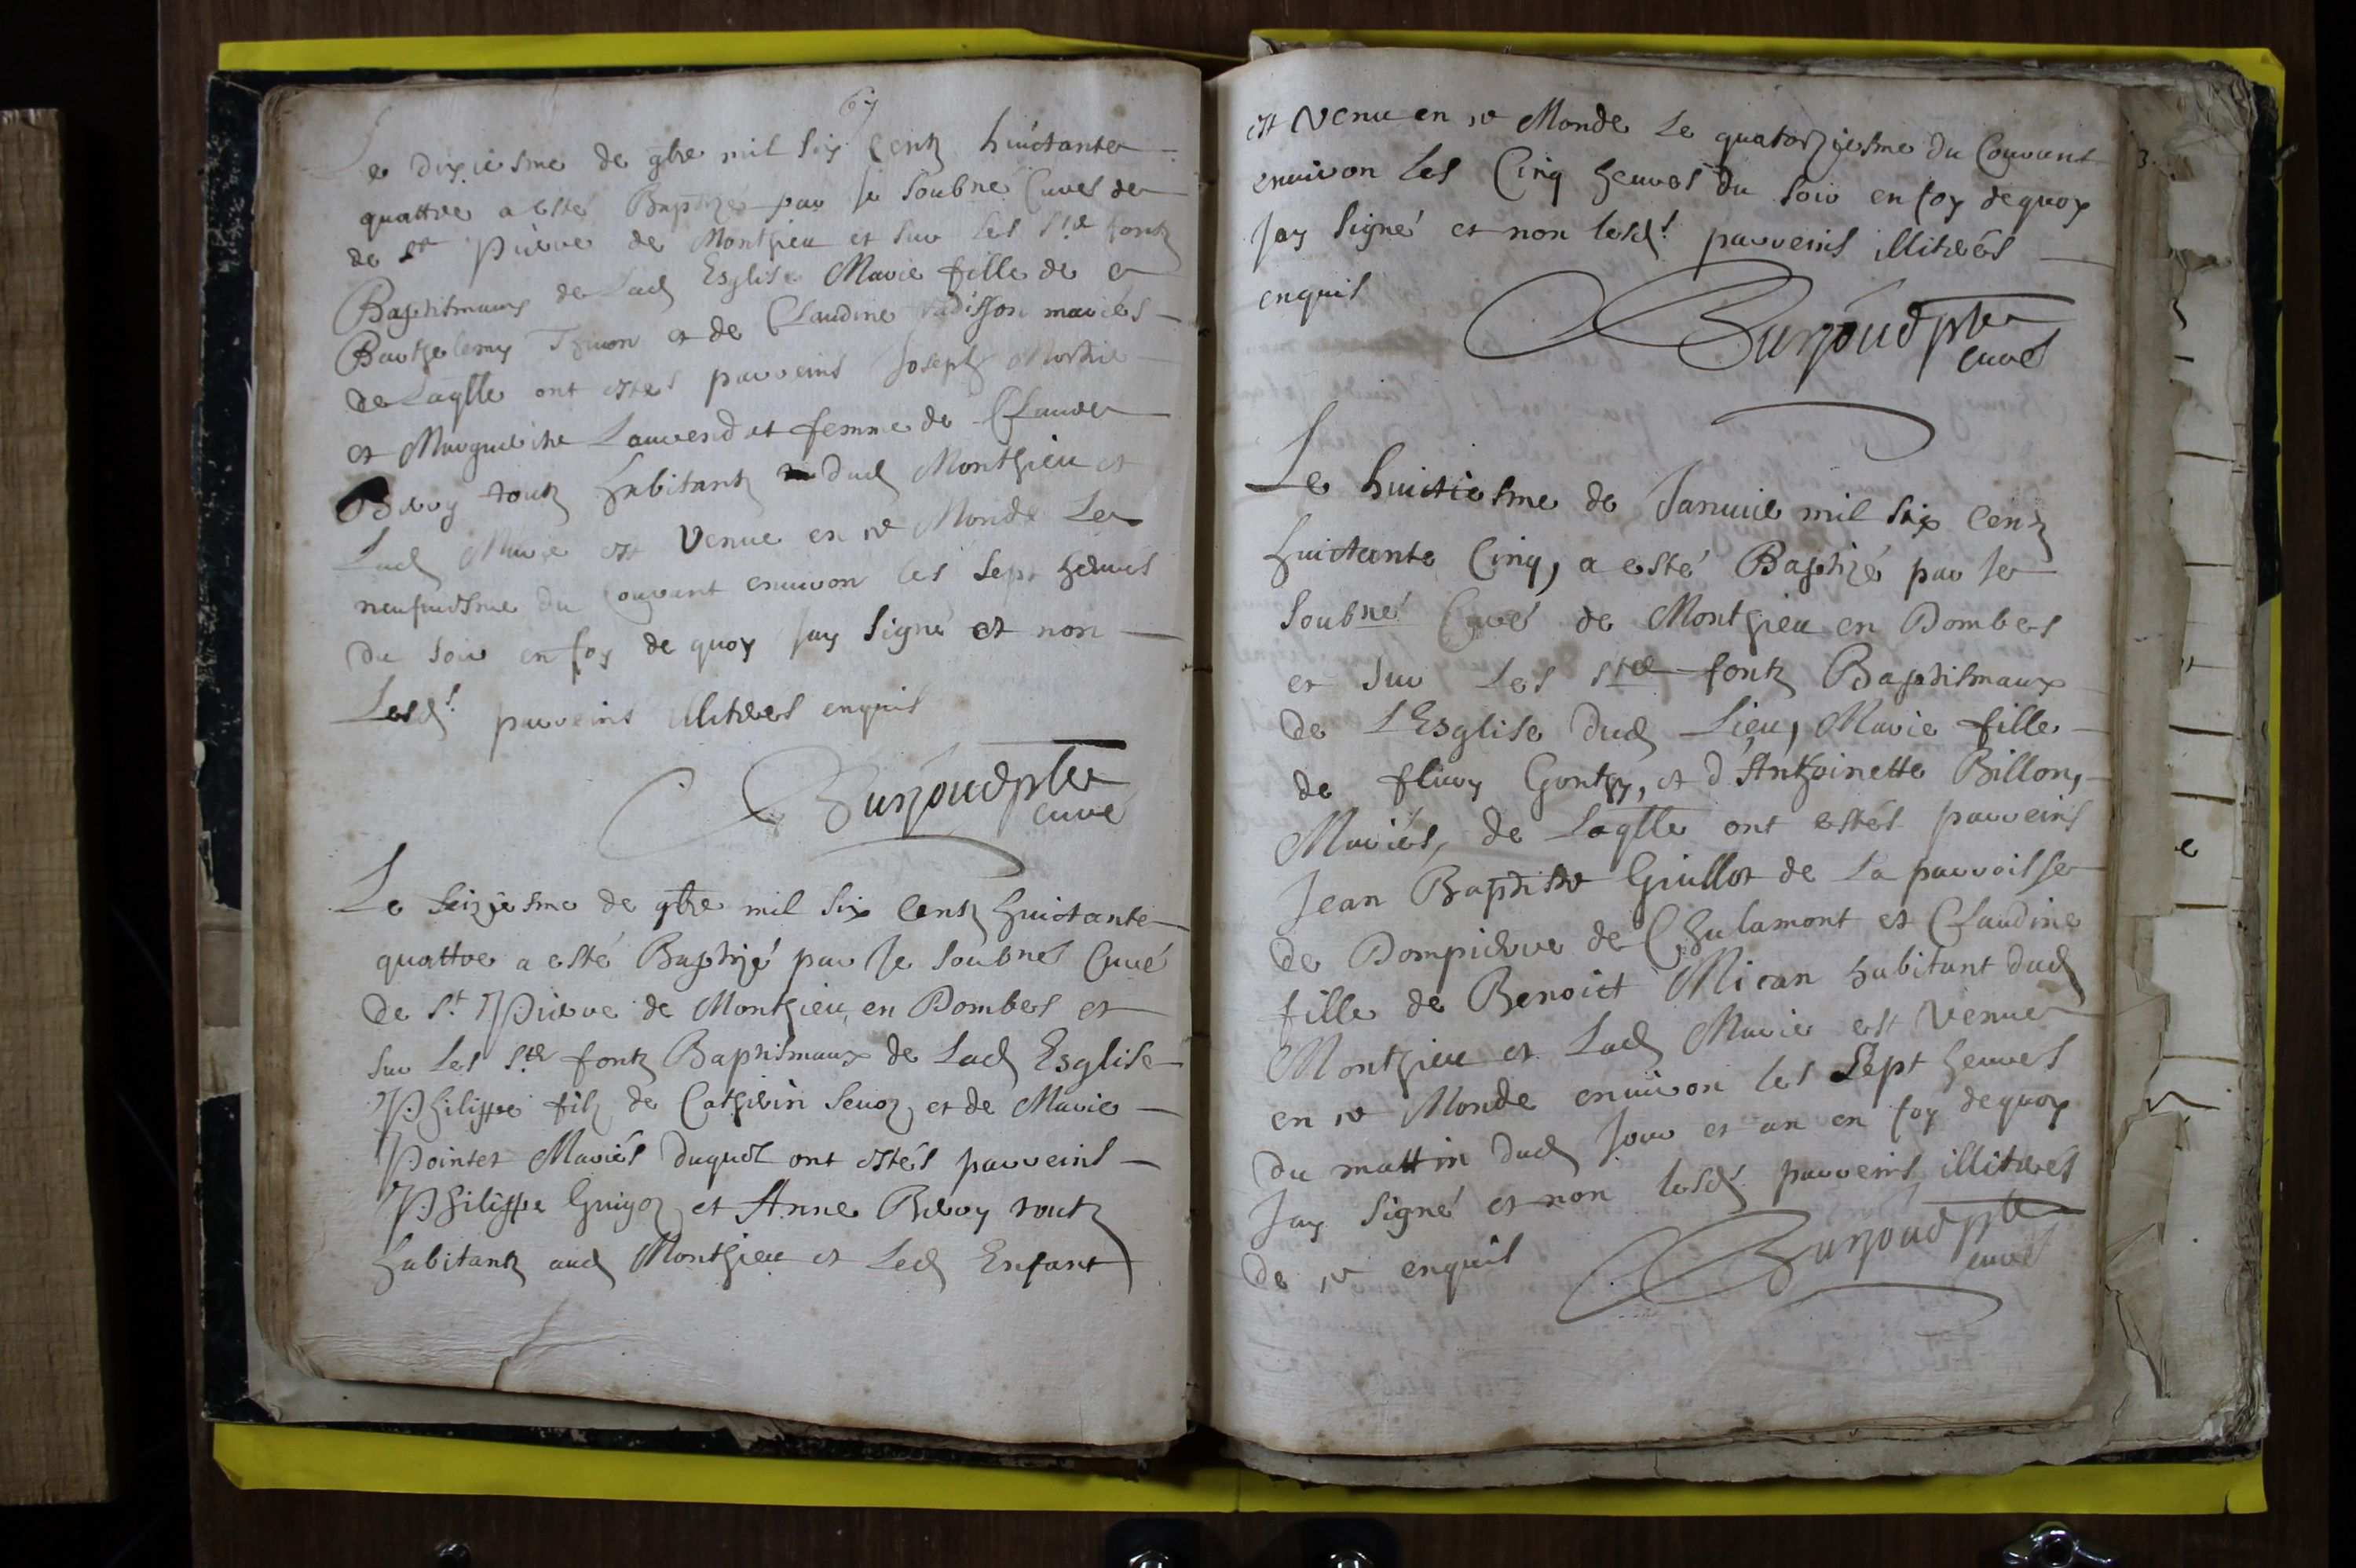 67
Le dixiesme de 9bre mil six centz huictante
quattre a esté Baptizé par Je soubné Curé de
de St Pierre de Monthieu et sur les Sts fontz
Baptismaux de Lad Esglise Marie fille de
Barthelemy et de Claudine mariés
de Laqlle ont estes parreins Joseph
et Marguerite Laurendet femme de Claude
Brevy toutz habitantz dud Monthieu et
Lad Marie est venue en ce Monde Le
neufviesme du Courant environ les sept heures
du soir en foy de quoy Jay signé et non
Lesd! parreins illiteres enquis
Burjoud pbre
curé
Le seiziesme de 9bre mil six centz huictante
quattre a esté Baptizé par Je soubné Curé
de St Pierre de Monthieu en Dombes et
sur Les Sts fontz Baptismaux de Lad Esglise
Philippe filz de Catherin Sevoz et de Marie
Pointet Mariés duquel ont estés parreins
Philippe Guigoz et Anne Brevy toutz
habitantz aud Monthieu et Led Enfant
est venu en ce Monde Le quatorziesme du Courant
environ les Cinq heures du soir en foy dequoy
Jay signé et non lesd! parreins illiterés
enquis
Burjoud pbre
curé
Le huictiesme de Janvie mil six centz
huictante Cinq, a esté Baptizé par Je
soubné Curé de Monthieu en Dombes
et sur Les Sts fontz Baptismaux
de L'Esglise dud Lieu, Marie fille
de fleury Gonthy, et d'Anthoinette Billon,
Mariés, de Laqlle ont estés parreins
Jean Baptiste Guillot de La parroisse
de Dompierre de Chalamont et Claudine
fille de Benoict Mican habitant dud
Monthieu et Lad Marie est venue
en ce Monde environ les sept heures
du mattin dud Jour et an en foy dequoy
Jay signé et non lesd parreins illiterés
de ce enquis
Burjoud pbre
curé